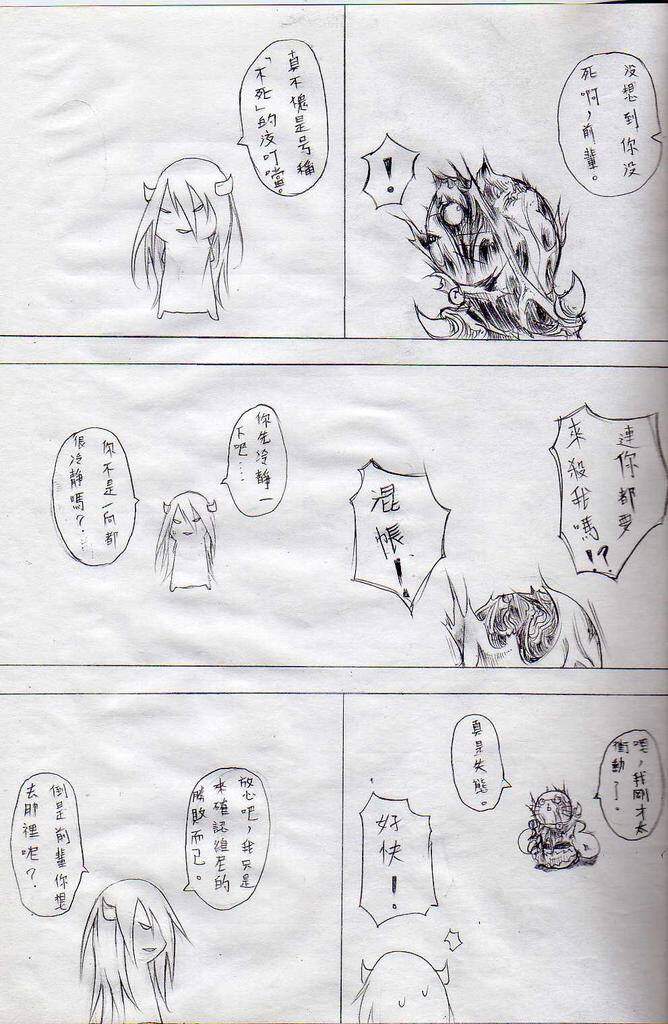 沒想到你沒
死啊，前輩。
！
真不愧是号稱
「不死」的
連你都要
來殺我嗎!?
混帳！
你先冷靜一
下吧…
你不是一向都
很冷靜嗎？…
嗯，我剛才太
衝動了。
真是失態。
好快！
放心吧，我只是
來確認維尼的
勝敗而已。
倒是前輩你想
去那裡呢？